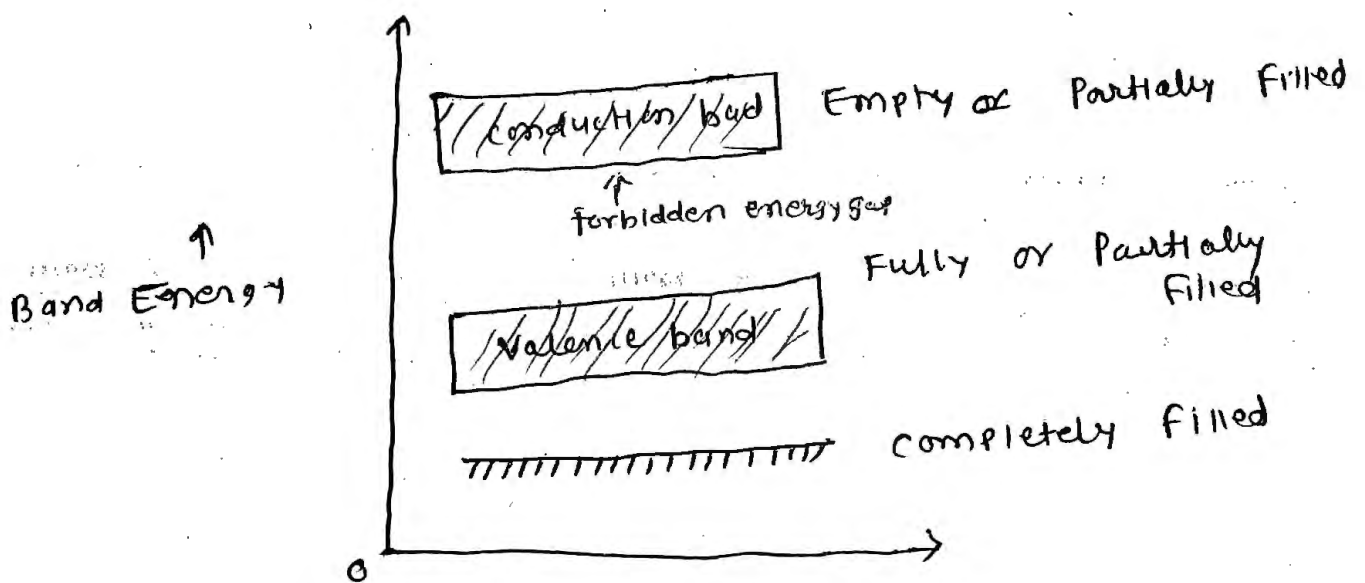 conduction bad
Empty or Partially Filled
↑
forbidden energy gap
↑
Band Energy
Fully or Partially
Filled
Valence band
Completely Filled
0